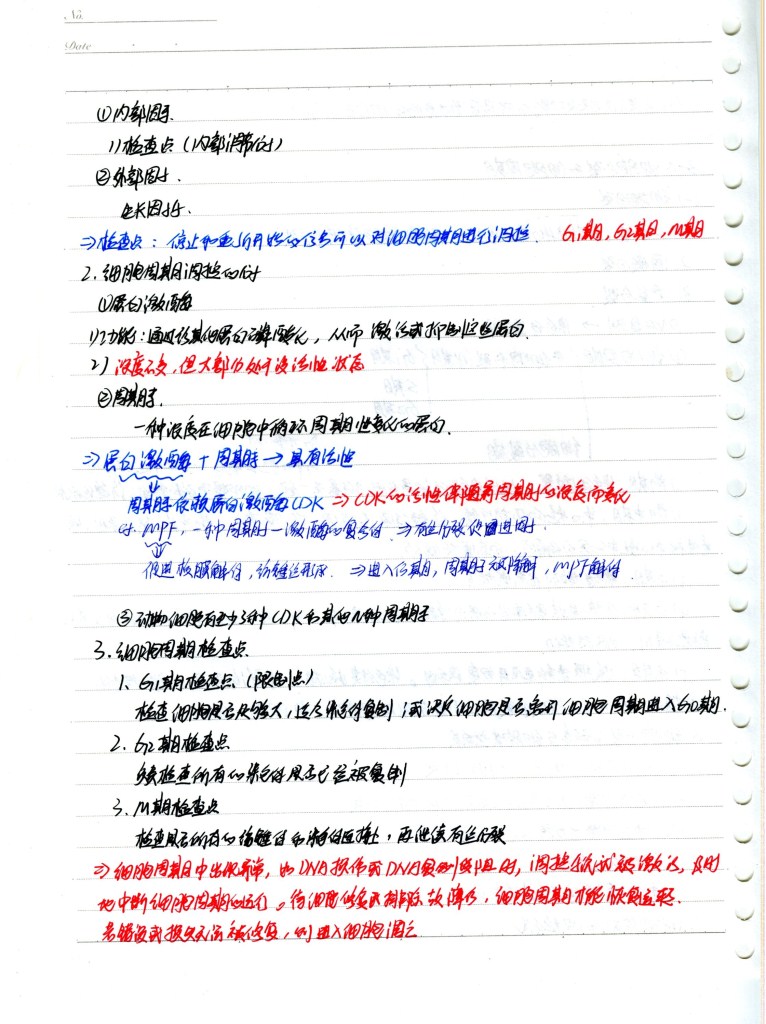 No.
Date
①内部因子.
1)检查点(内部调节位点)
②外部因子.
生长因子.
⇒检查点:停止和重新开始的信号可以对细胞周期进行调控. G1期,G2期,M期
2.细胞周期调控
①蛋白激酶
1)功能:通过将其他蛋白磷酸化,从而激活或抑制这些蛋白.
2)浓度不变,但大部分处于没活性状态
②周期子.
一种浓度在细胞中循环周期性变化的蛋白.
⇒蛋白激酶+周期子→具有活性
周期子依赖蛋白激酶CDK ⇒CDK的活性伴随着周期子的浓度而变化
eg. MPF,一种周期子—激酶的复合体 ⇒有丝分裂促进因子
促进核膜解体,纺锤丝形成. ⇒进入后期,周期子被降解,MPF解体
③动物细胞有至少3种CDK和其他几种周期子
3.细胞周期检查点
1、G1期检查点(限制点)
检查细胞是否足够大,适合染色体复制;或决定细胞是否离开细胞周期进入G0期.
2. G2期检查点
检查所有的染色体是否已经被复制
3. M期检查点
检查是否所有的纺锤体和染色体连接上,再继续有丝分裂
⇒细胞周期中出现异常,如DNA损伤或DNA复制受阻时,调控机制被激活,及时
地中断细胞周期的运行。待细胞修复或排除故障后,细胞周期才能恢复运转.
若错误或损失无法被修复,则进入细胞凋亡